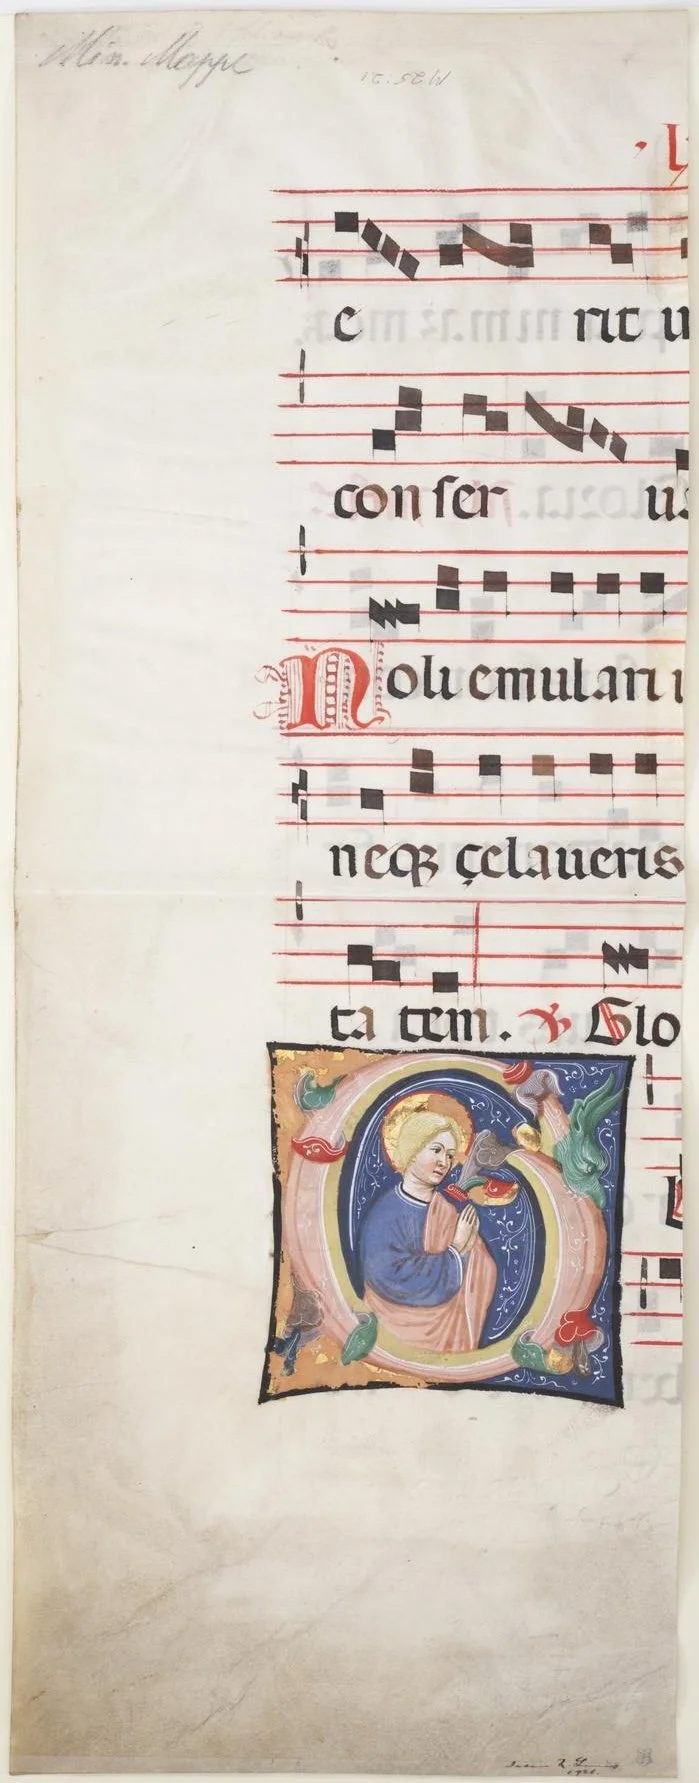 Min. Mappe
M 25:21
e rit
con ser
Noli emulari
neqꝫ çelaueris
ta tem. Glo